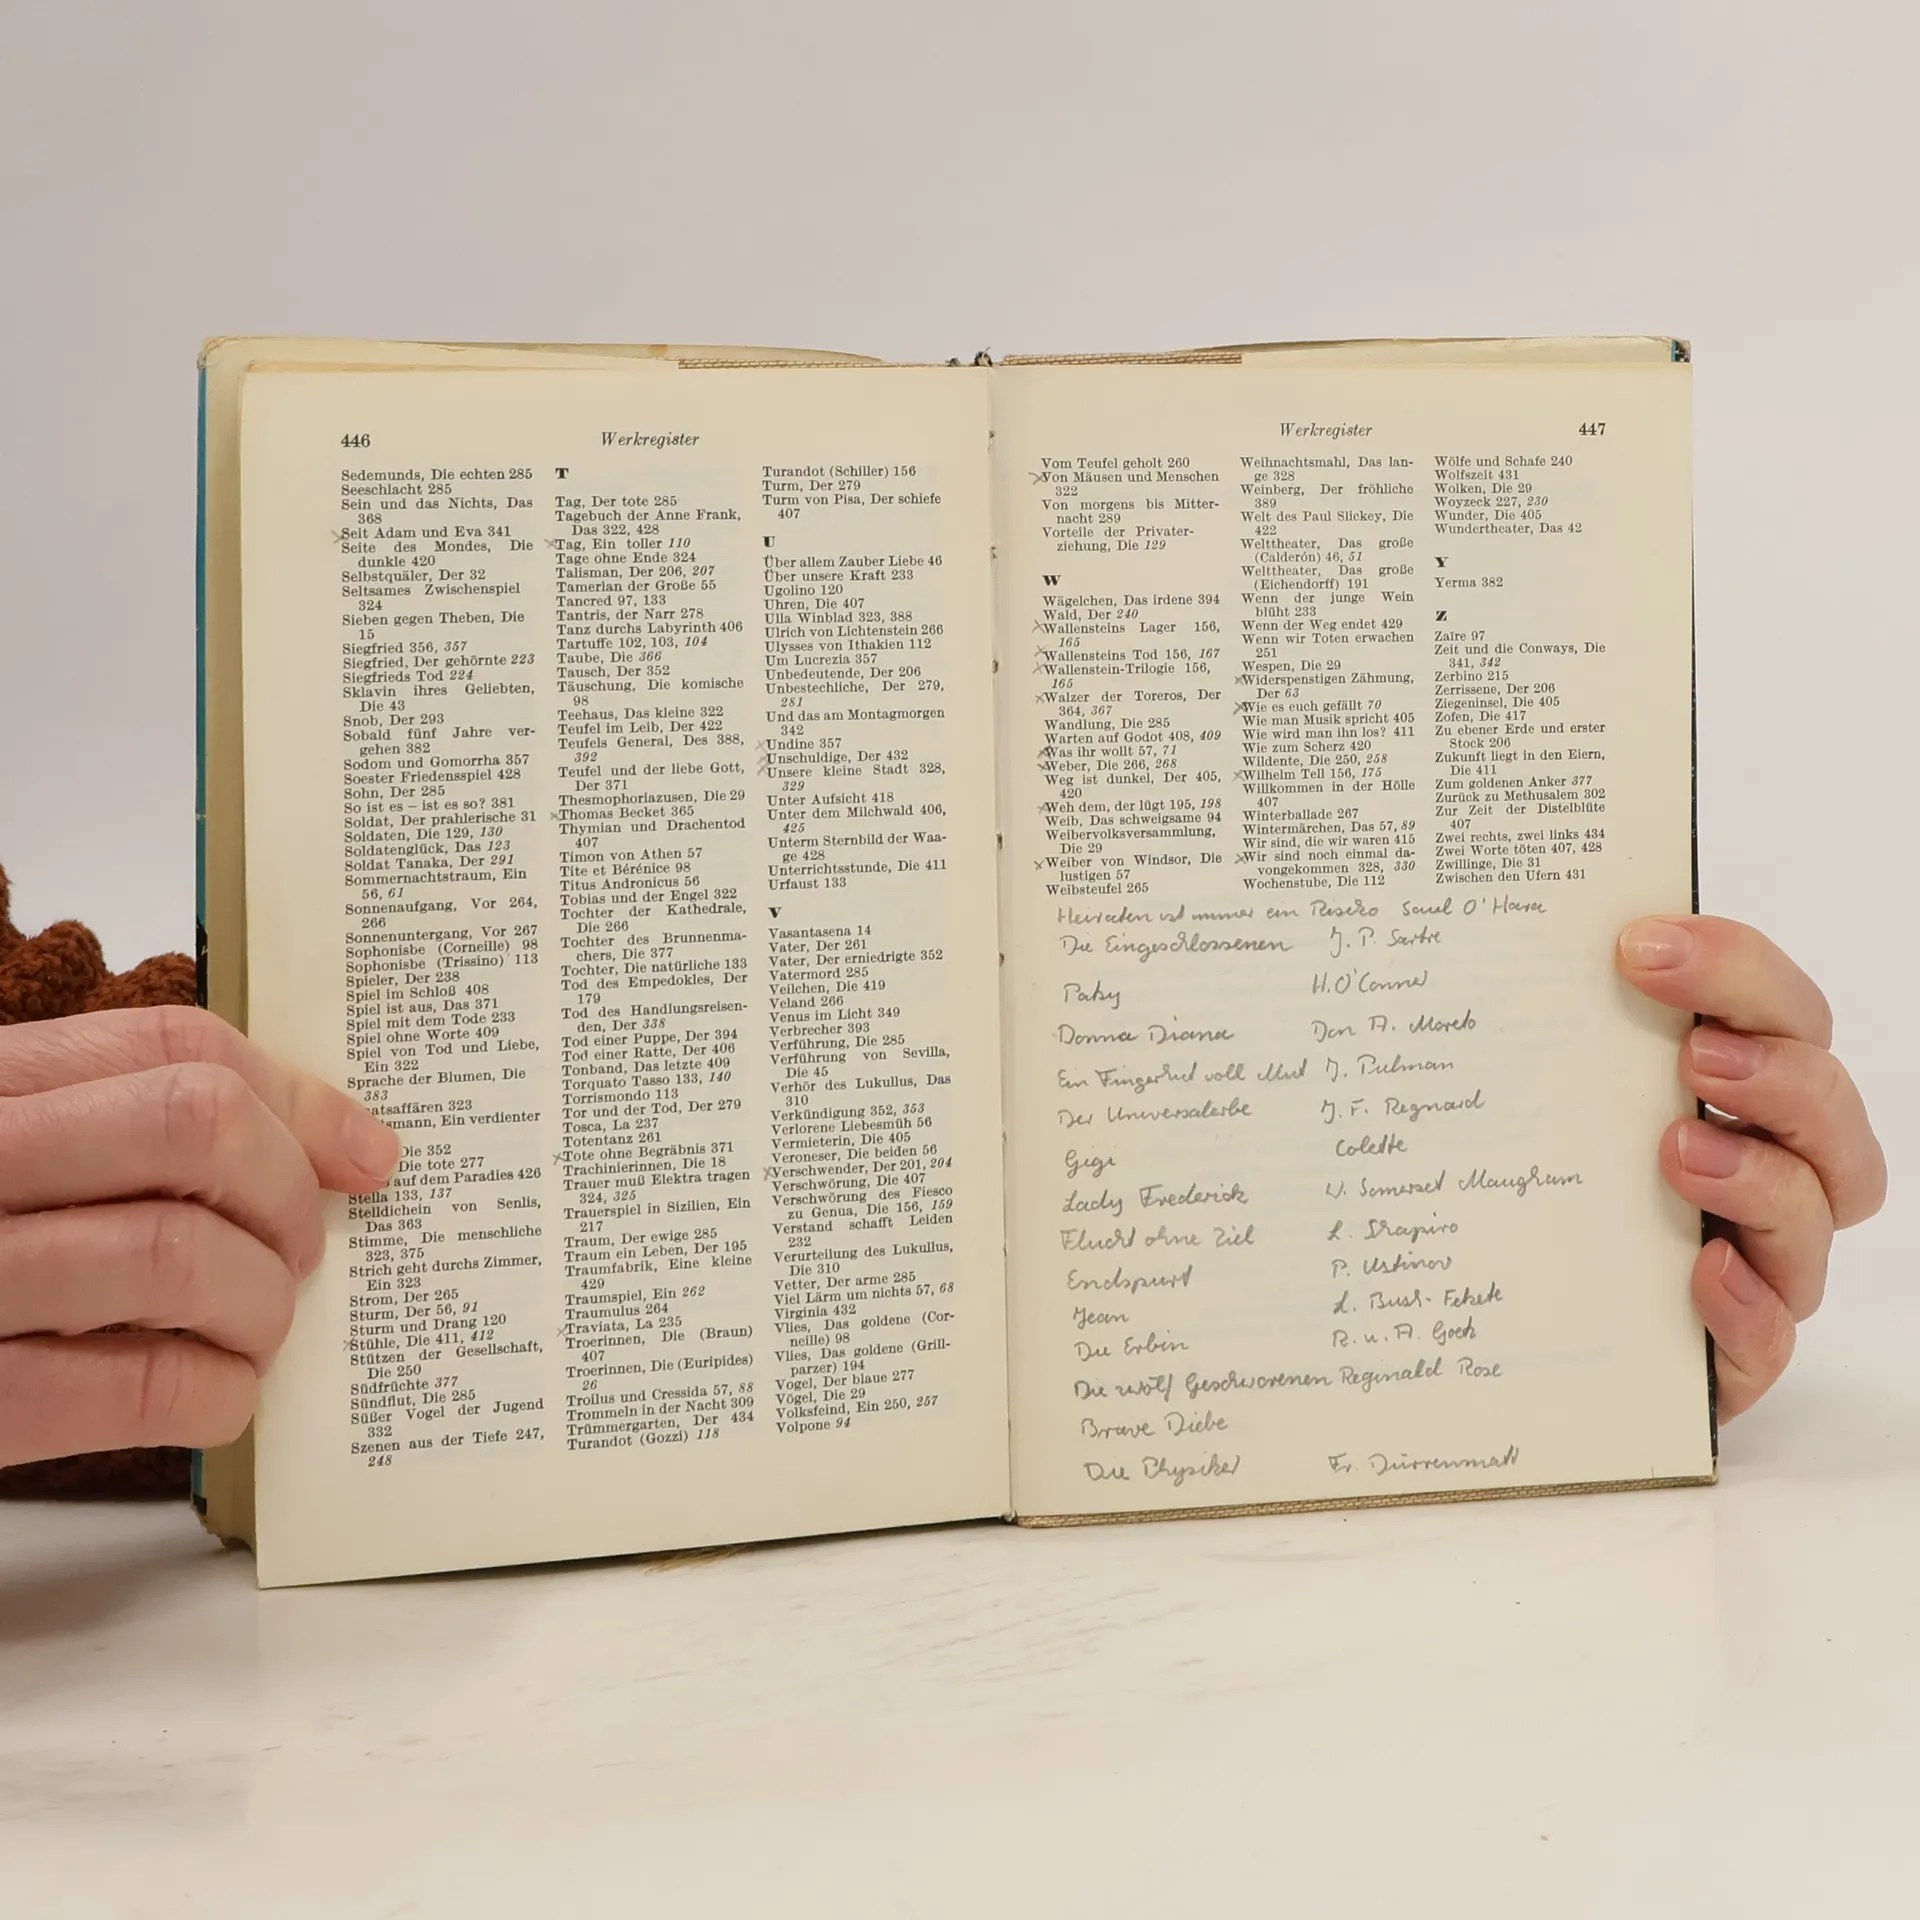 446
Werkregister
Sedemunds, Die echten 285
Seeschlacht 285
Sein und das Nichts, Das
368
Seit Adam und Eva 341
Seite des Mondes, Die
dunkle 420
Selbstquäler, Der 32
Seltsames Zwischenspiel
324
Sieben gegen Theben, Die
15
Siegfried 356, 357
Siegfried, Der gehörnte 223
Siegfrieds Tod 224
Sklavin ihres Geliebten,
Die 43
Snob, Der 293
Sobald fünf Jahre ver-
gehen 382
Sodom und Gomorrha 357
Soester Friedensspiel 428
Sohn, Der 285
So ist es – ist es so? 381
Soldat, Der prahlerische 31
Soldaten, Die 129, 130
Soldatenglück, Das 123
Soldat Tanaka, Der 291
Sommernachtstraum, Ein
56, 61
Sonnenaufgang, Vor 264,
266
Sonnenuntergang, Vor 267
Sophonisbe (Corneille) 98
Sophonisbe (Trissino) 113
Spieler, Der 238
Spiel im Schloß 408
Spiel ist aus, Das 371
Spiel mit dem Tode 233
Spiel ohne Worte 409
Spiel von Tod und Liebe,
Ein 322
Sprache der Blumen, Die
383
atsaffären 323
smann, Ein verdienter
Die 352
Die tote 277
auf dem Paradies 426
Stella 133, 137
Stelldichein von Senlis,
Das 363
Stimme, Die menschliche
323, 375
Strich geht durchs Zimmer,
Ein 323
Strom, Der 265
Sturm, Der 56, 91
Sturm und Drang 120
Stühle, Die 411, 412
Stützen der Gesellschaft,
Die 250
Südfrüchte 377
Sündflut, Die 285
Süßer Vogel der Jugend
332
Szenen aus der Tiefe 247,
248
T
Tag, Der tote 285
Tagebuch der Anne Frank,
Das 322, 428
Tag, Ein toller 110
Tage ohne Ende 324
Talisman, Der 206, 207
Tamerlan der Große 55
Tancred 97, 133
Tantris, der Narr 278
Tanz durchs Labyrinth 406
Tartuffe 102, 103, 104
Taube, Die 366
Tausch, Der 352
Täuschung, Die komische
98
Teehaus, Das kleine 322
Teufel im Leib, Der 422
Teufels General, Des 388,
392
Teufel und der liebe Gott,
Der 371
Thesmophoriazusen, Die 29
Thomas Becket 365
Thymian und Drachentod
407
Timon von Athen 57
Tite et Bérénice 98
Titus Andronicus 56
Tobias und der Engel 322
Tochter der Kathedrale,
Die 266
Tochter des Brunnenma-
chers, Die 377
Tochter, Die natürliche 133
Tod des Empedokles, Der
179
Tod des Handlungsreisen-
den, Der 338
Tod einer Puppe, Der 394
Tod einer Ratte, Der 406
Tonband, Das letzte 409
Torquato Tasso 133, 140
Torrismondo 113
Tor und der Tod, Der 279
Tosca, La 237
Totentanz 261
Tote ohne Begräbnis 371
Trachinierinnen, Die 18
Trauer muß Elektra tragen
324, 325
Trauerspiel in Sizilien, Ein
217
Traum, Der ewige 285
Traum ein Leben, Der 195
Traumfabrik, Eine kleine
429
Traumspiel, Ein 262
Traumulus 264
Traviata, La 235
Troerinnen, Die (Braun)
407
Troerinnen, Die (Euripides)
26
Troilus und Cressida 57, 88
Trommeln in der Nacht 309
Trümmergarten, Der 434
Turandot (Gozzi) 118
Turandot (Schiller) 156
Turm, Der 279
Turm von Pisa, Der schiefe
407
U
Über allem Zauber Liebe 46
Über unsere Kraft 233
Ugolino 120
Uhren, Die 407
Ulla Winblad 323, 388
Ulrich von Lichtenstein 266
Ulysses von Ithakien 112
Um Lucrezia 357
Unbedeutende, Der 206
Unbestechliche, Der 279,
281
Und das am Montagmorgen
342
Undine 357
Unschuldige, Der 432
Unsere kleine Stadt 328,
329
Unter Aufsicht 418
Unter dem Milchwald 406,
425
Unterm Sternbild der Waa-
ge 428
Unterrichtsstunde, Die 411
Urfaust 133
V
Vasantasena 14
Vater, Der 261
Vater, Der erniedrigte 352
Vatermord 285
Veilchen, Die 419
Veland 266
Venus im Licht 349
Verbrecher 393
Verführung, Die 285
Verführung von Sevilla,
Die 45
Verhör des Lukullus, Das
310
Verkündigung 352, 353
Verlorene Liebesmüh 56
Vermieterin, Die 405
Veroneser, Die beiden 56
Verschwender, Der 201, 204
Verschwörung, Die 407
Verschwörung des Fiesco
zu Genua, Die 156, 159
Verstand schafft Leiden
232
Verurteilung des Lukullus,
Die 310
Vetter, Der arme 285
Viel Lärm um nichts 57, 68
Virginia 432
Vlies, Das goldene (Cor-
neille) 98
Vlies, Das goldene (Grill-
parzer) 194
Vogel, Der blaue 277
Vögel, Die 29
Volksfeind, Ein 250, 257
Volpone 94
Werkregister
447
Vom Teufel geholt 260
Von Mäusen und Menschen
322
Von morgens bis Mitter-
nacht 289
Vorteile der Privater-
ziehung, Die 129
W
Wägelchen, Das irdene 394
Wald, Der 240
Wallensteins Lager 156,
165
Wallensteins Tod 156, 167
Wallenstein-Trilogie 156,
165
Walzer der Toreros, Der
364, 367
Wandlung, Die 285
Warten auf Godot 408, 409
Was ihr wollt 57, 71
Weber, Die 266, 268
Weg ist dunkel, Der 405,
420
Weh dem, der lügt 195, 198
Weib, Das schweigsame 94
Weibervolksversammlung,
Die 29
Weiber von Windsor, Die
lustigen 57
Weibsteufel 265
Weihnachtsmahl, Das lan-
ge 328
Weinberg, Der fröhliche
389
Welt des Paul Slickey, Die
422
Welttheater, Das große
(Calderón) 46, 51
Welttheater, Das große
(Eichendorff) 191
Wenn der junge Wein
blüht 233
Wenn der Weg endet 429
Wenn wir Toten erwachen
251
Wespen, Die 29
Widerspenstigen Zähmung,
Der 63
Wie es euch gefällt 70
Wie man Musik spricht 405
Wie wird man ihn los? 411
Wie zum Scherz 420
Wildente, Die 250, 258
Wilhelm Tell 156, 175
Willkommen in der Hölle
407
Winterballade 267
Wintermärchen, Das 57, 89
Wir sind, die wir waren 415
Wir sind noch einmal da-
vongekommen 328, 330
Wochenstube, Die 112
Wölfe und Schafe 240
Wolfszeit 431
Wolken, Die 29
Woyzeck 227, 230
Wunder, Die 405
Wundertheater, Das 42
Y
Yerma 382
Z
Zaïre 97
Zeit und die Conways, Die
341, 342
Zerbino 215
Zerrissene, Der 206
Ziegeninsel, Die 405
Zofen, Die 417
Zu ebener Erde und erster
Stock 206
Zukunft liegt in den Eiern,
Die 411
Zum goldenen Anker 377
Zurück zu Methusalem 302
Zur Zeit der Distelblüte
407
Zwei rechts, zwei links 434
Zwei Worte töten 407, 428
Zwillinge, Die 31
Zwischen den Ufern 431
Heiraten ist immer ein Risiko Saul O'Hara
Die Eingeschlossenen J. P. Sartre
H. O'Conner
Donna Diana Don A. Moreto
Ein Fingerhut voll Mut J. Pulman
Der Universalerbe J. F. Regnard
Gigi Colette
Lady Frederick W. Somerset Maugham
Flucht ohne Ziel L. Shapiro
Endspurt P. Ustinov
Jean L. Bush-Fekete
Die Erbin R. u. A. Goetz
Die zwölf Geschworenen Reginald Rose
Brave Diebe
Die Physiker Fr. Dürrenmatt